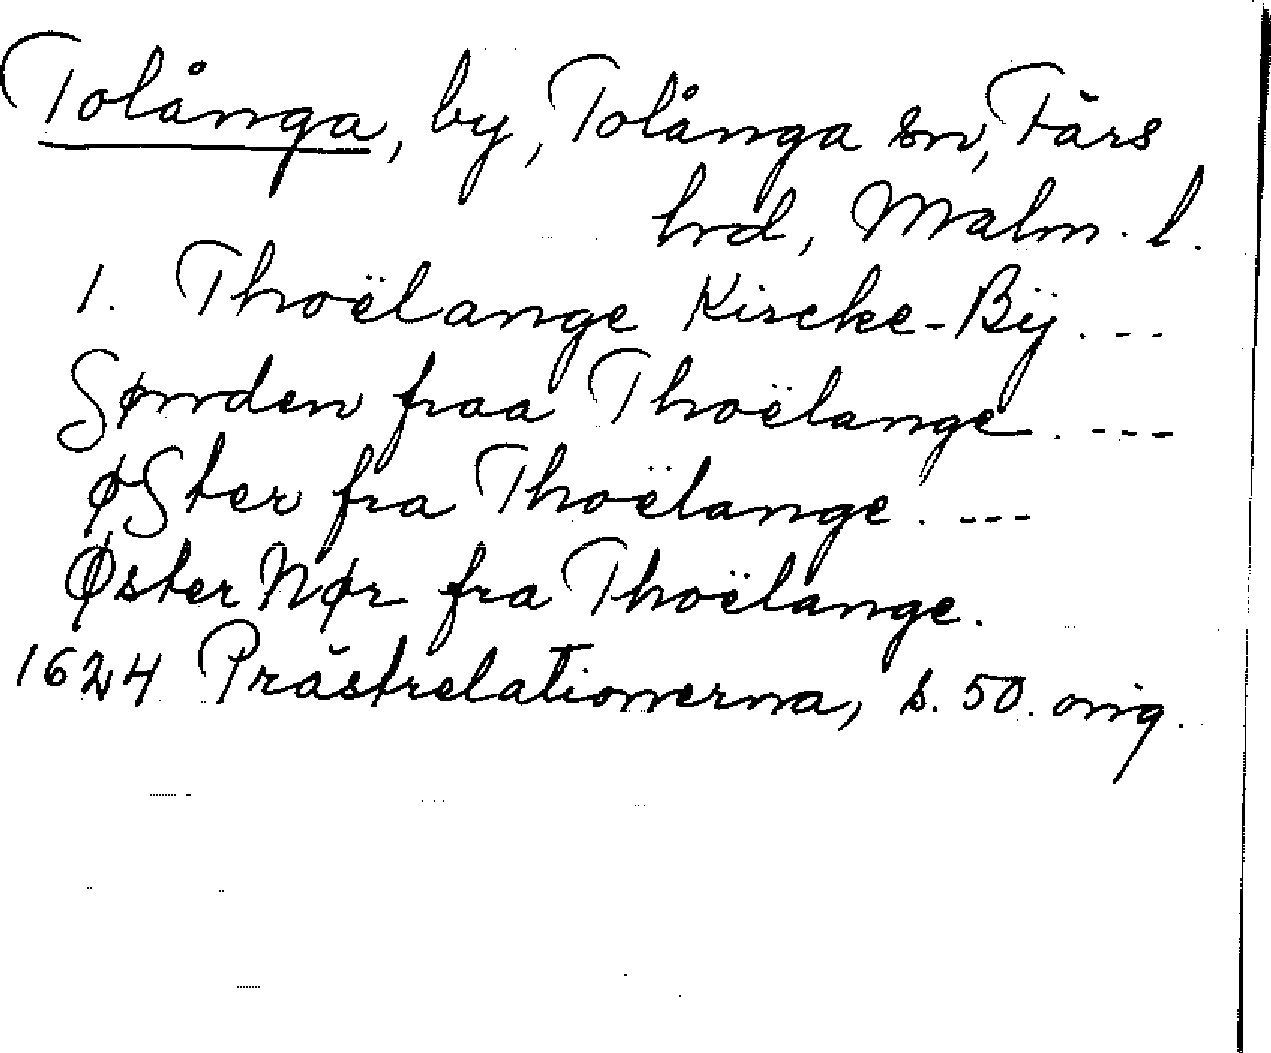 Tolånga, by, Tolånga sn, Färs
hrd, Malm. l.
1. Thoëlange Kircke-Bÿ. ---
Sønden fraa Thoëlange. ---
øSter fra Thoëlange. ---
Øster Nør fra Thoëlange.
1624 Prästrelationerna, s. 50. orig.